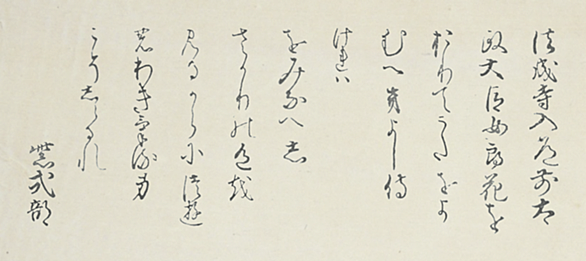 法成寺入道前太
政大臣女郎花を
おりてうたをよ
むへきよし侍
けれは
をみなへし
さかりの色を
見るからにつゆ
のわきける身
こそしらるれ
紫式部